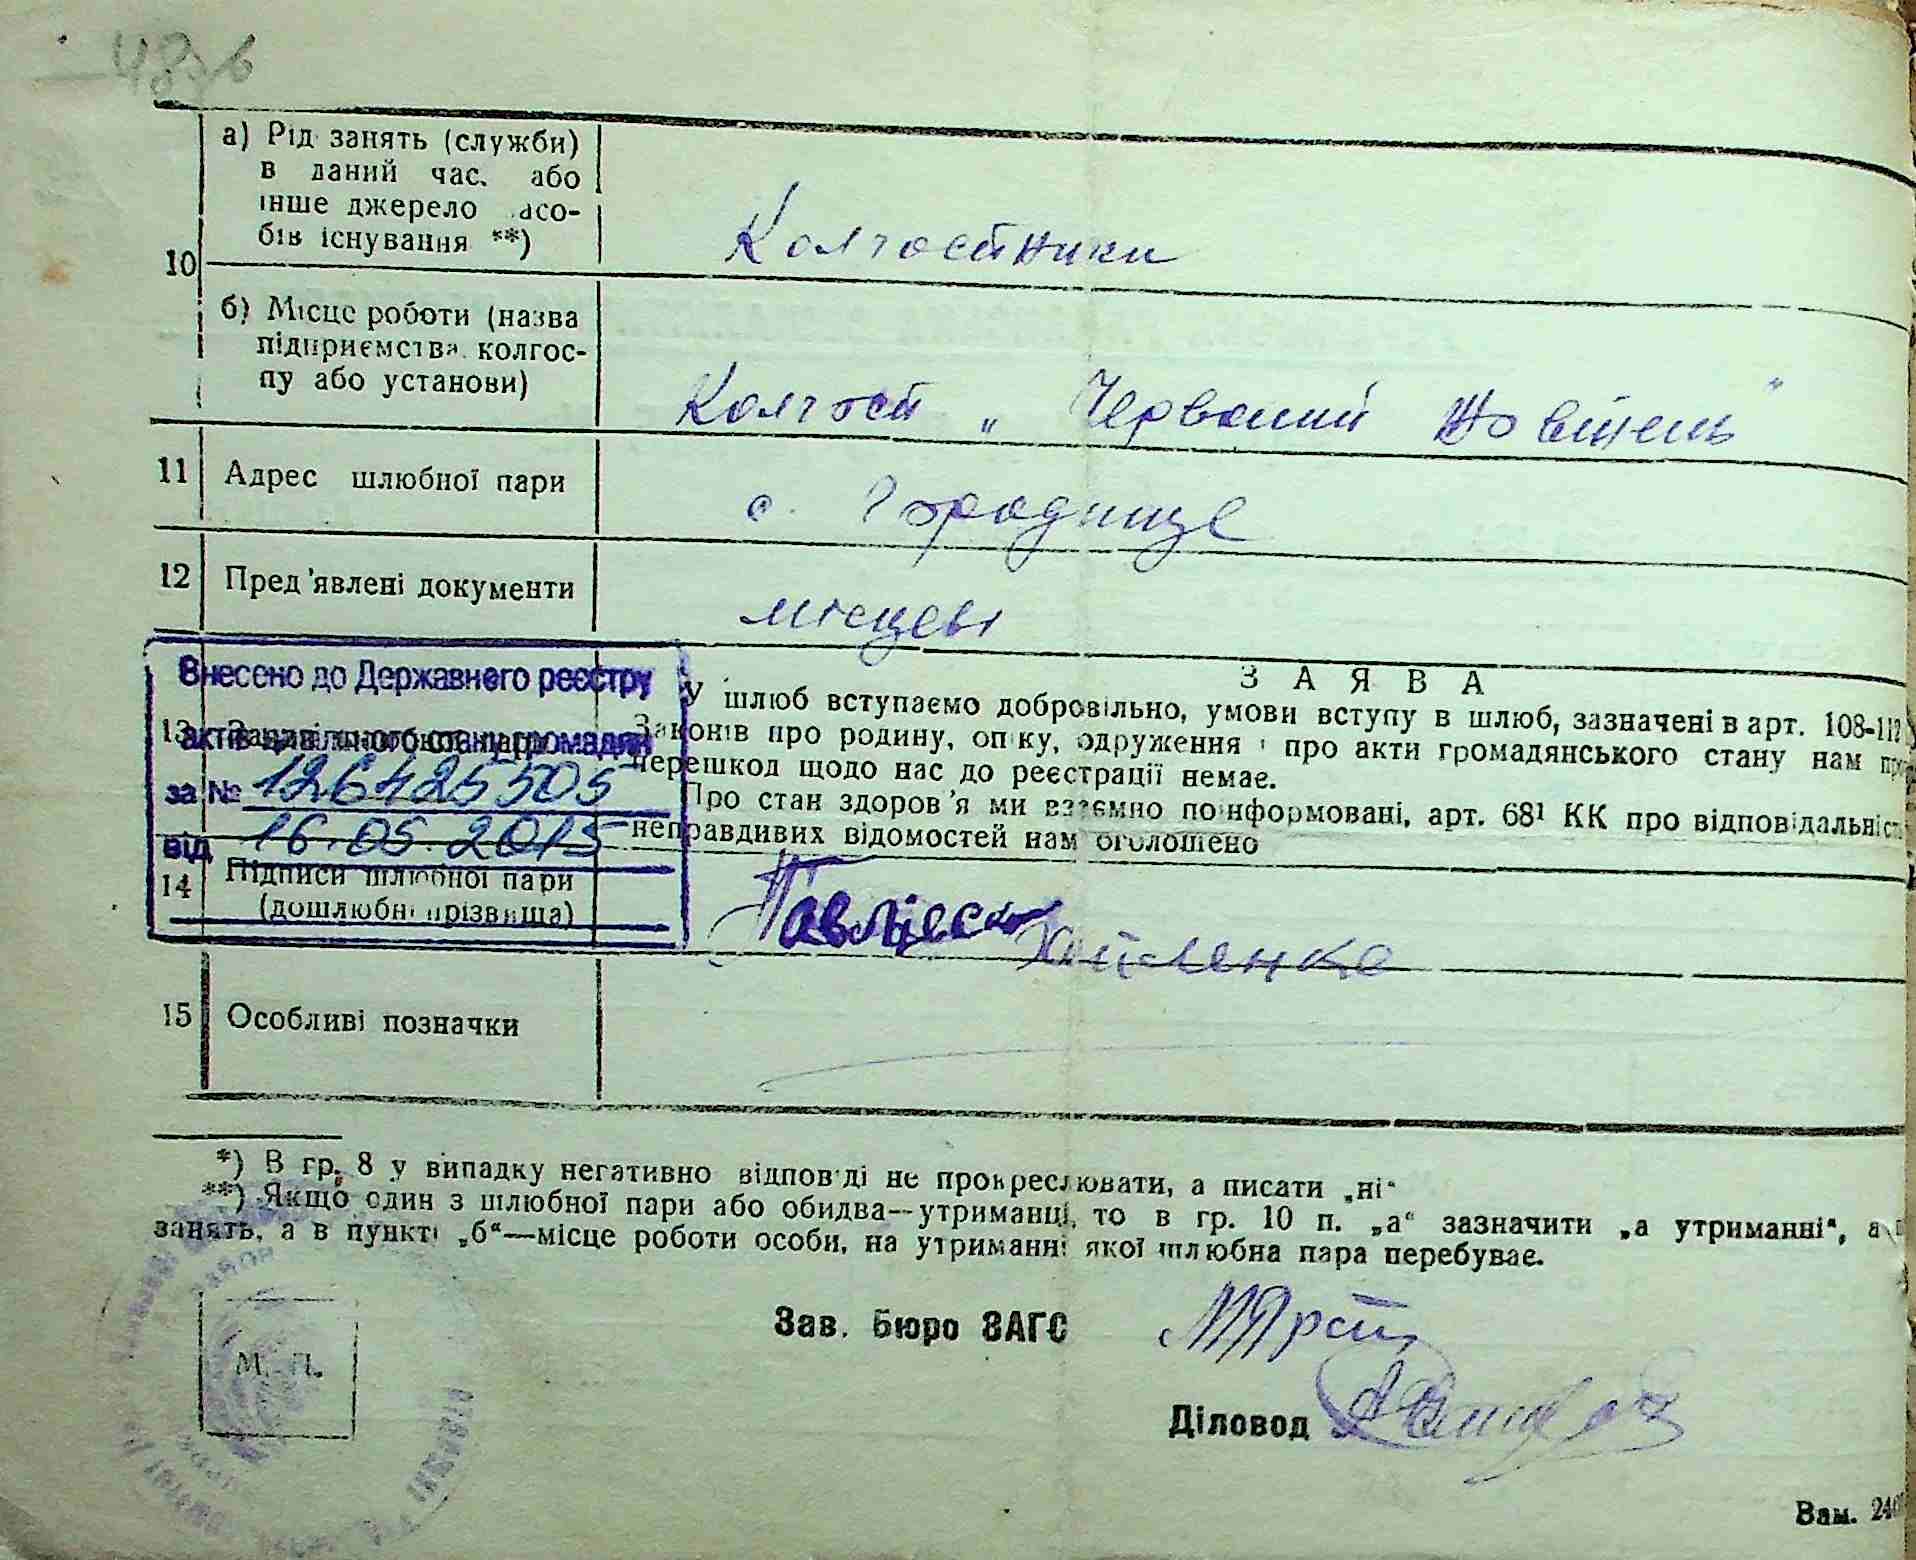 48
а) Рід занять (служби)
в даний час. або
інше джерело засо-
бів існування **)
Колгоспники
10
б) Місце роботи (назва
підприємства, колгос-
пу або установи)
Колгосп „ Червоний Жовтень "
11 Адрес шлюбної пари
с. Городище
12 Пред'явлені документи
місцеві
Внесено до Державного реєстру
актів цивільного стану громадян
за № 126425505
від 16.05.2015
13
З А Я В А
У шлюб вступаємо добровільно, умови вступу в шлюб, зазначені в арт. 108-112
Законів про родину, опіку, одруження і про акти громадянського стану нам
перешкод щодо нас до реєстрації немає.
Про стан здоров'я ми взаємно поінформовані, арт. 68¹ КК про відповідальність
неправдивих відомостей нам оголошено
14 Підписи шлюбної пари
(дошлюбні прізвища)
15 Особливі позначки
*) В гр. 8 у випадку негативно відповіді не прокреслювати, а писати „ні“
**) Якщо один з шлюбної пари або обидва—утриманці, то в гр. 10 п. „а“ зазначити „а утриманні“, а
занять, а в пункті „б“—місце роботи особи, на утриманні якої шлюбна пара перебуває.
Зав. бюро ЗАГС
М. П.
Діловод
Зам. 240